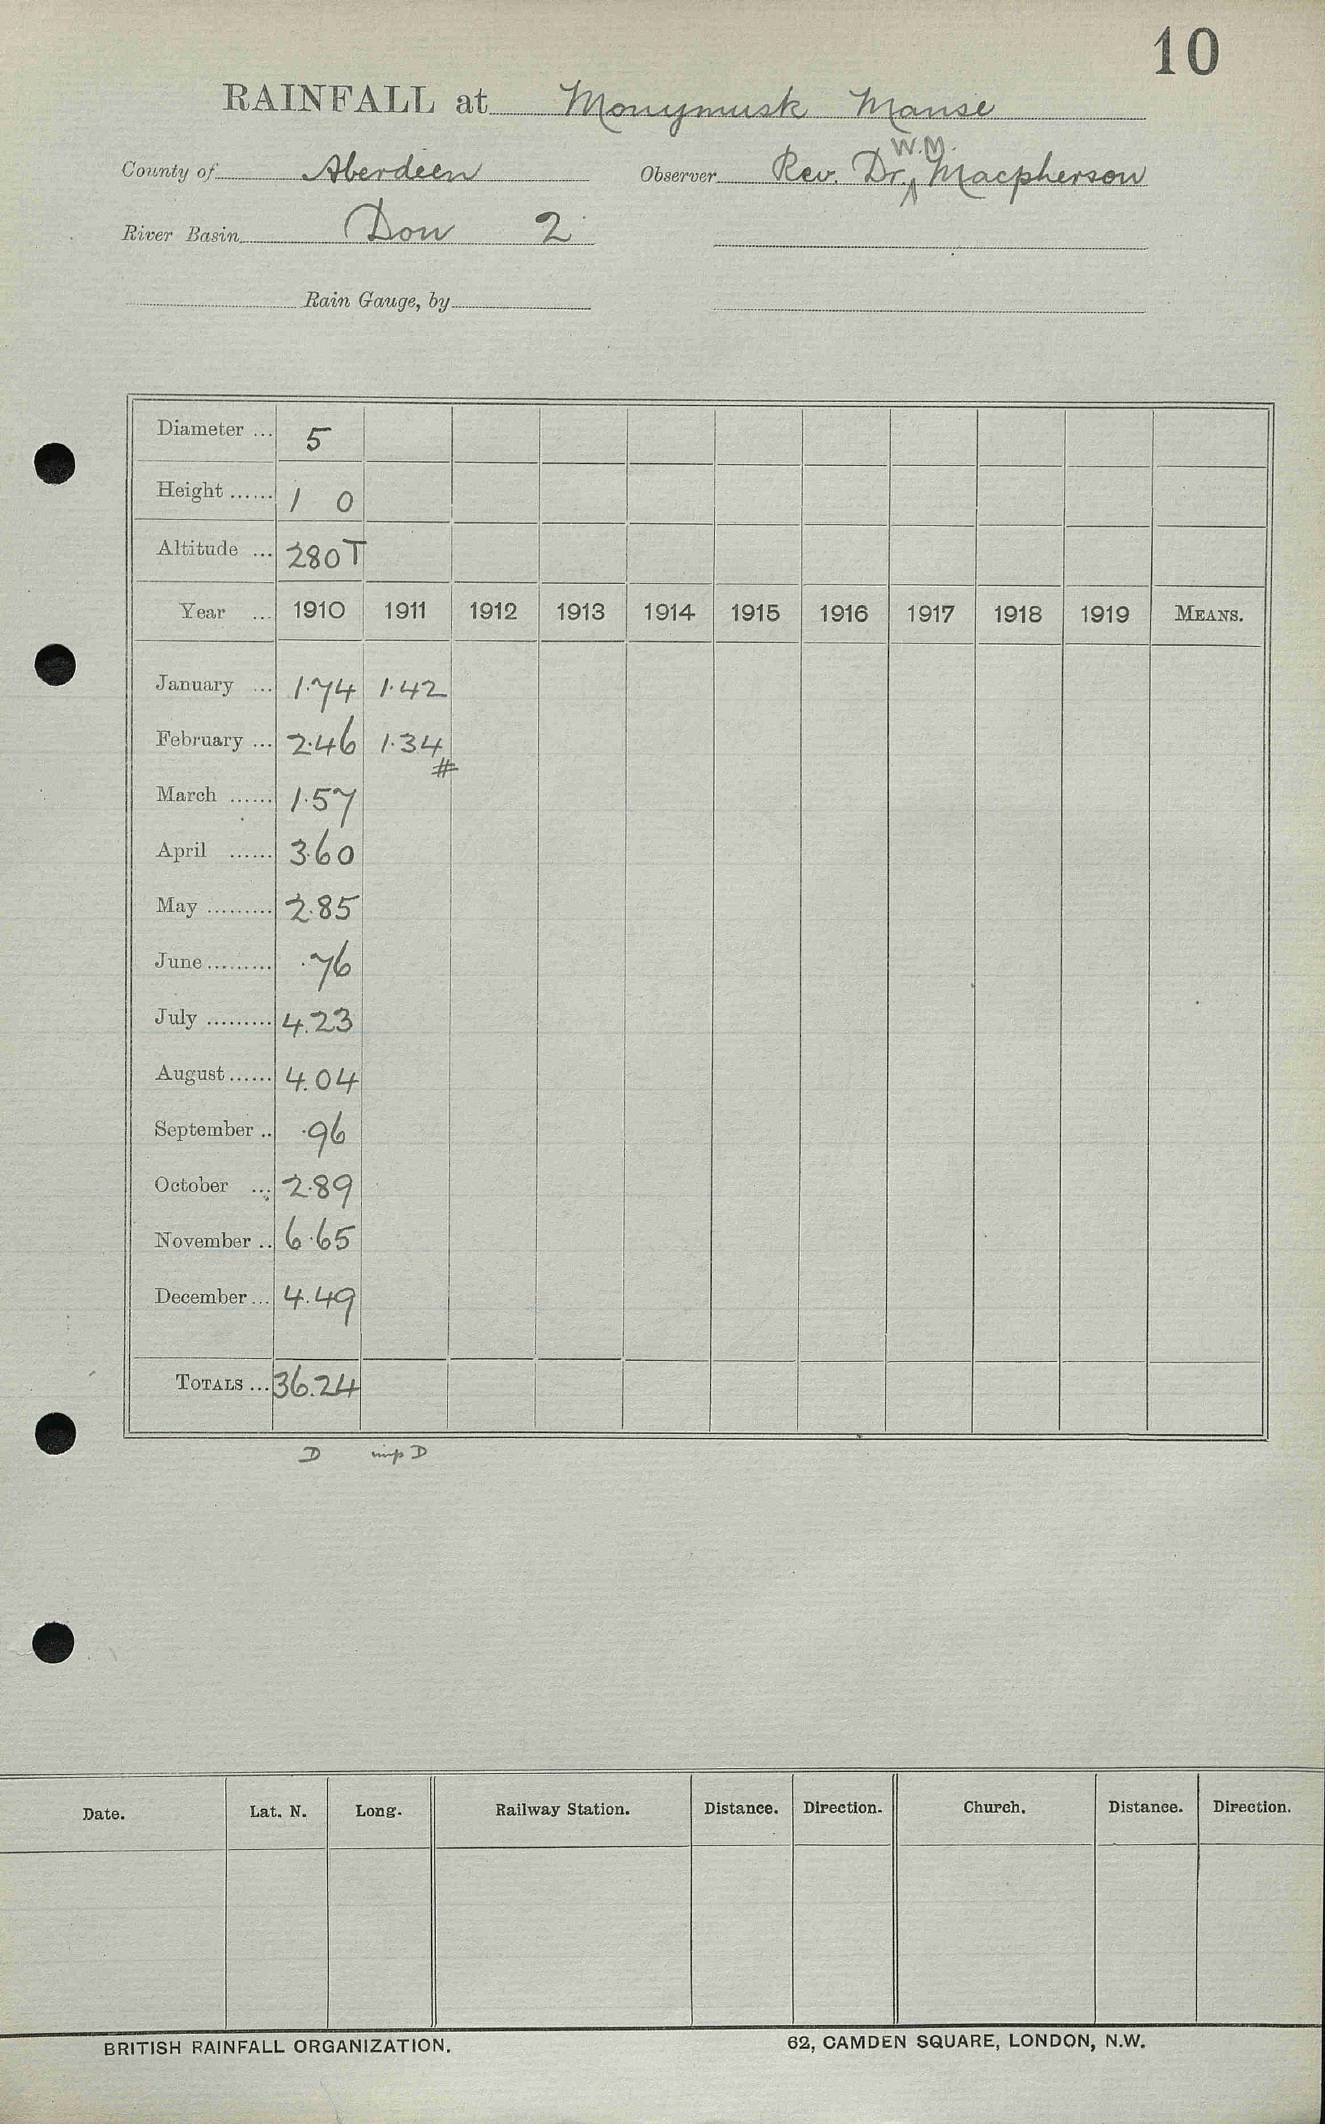 10
RAINFALL at Monymusk Manse
W.M.
County of Aberdeen Observer Rev. Dr. ^ Macpherson
River Basin Don 2
Rain Gauge, by
Diameter ... 5
Height ...... 1 0
Altitude ... 280 T
Year ... 1910 1911 1912 1913 1914 1915 1916 1917 1918 1919 MEANS.
January ... 1.74 1.42
February ... 2.46 1.34
#
March ...... 1.57
April ...... 3.60
May ......... 2.85
June ......... .76
July ......... 4.23
August ...... 4.04
September .. .96
October ... 2.89
November .. 6.65
December ... 4.49
TOTALS ... 36.24
D imp D
Date. Lat. N. Long. Railway Station. Distance. Direction. Church. Distance. Direction.
BRITISH RAINFALL ORGANIZATION. 62, CAMDEN SQUARE, LONDON, N.W.